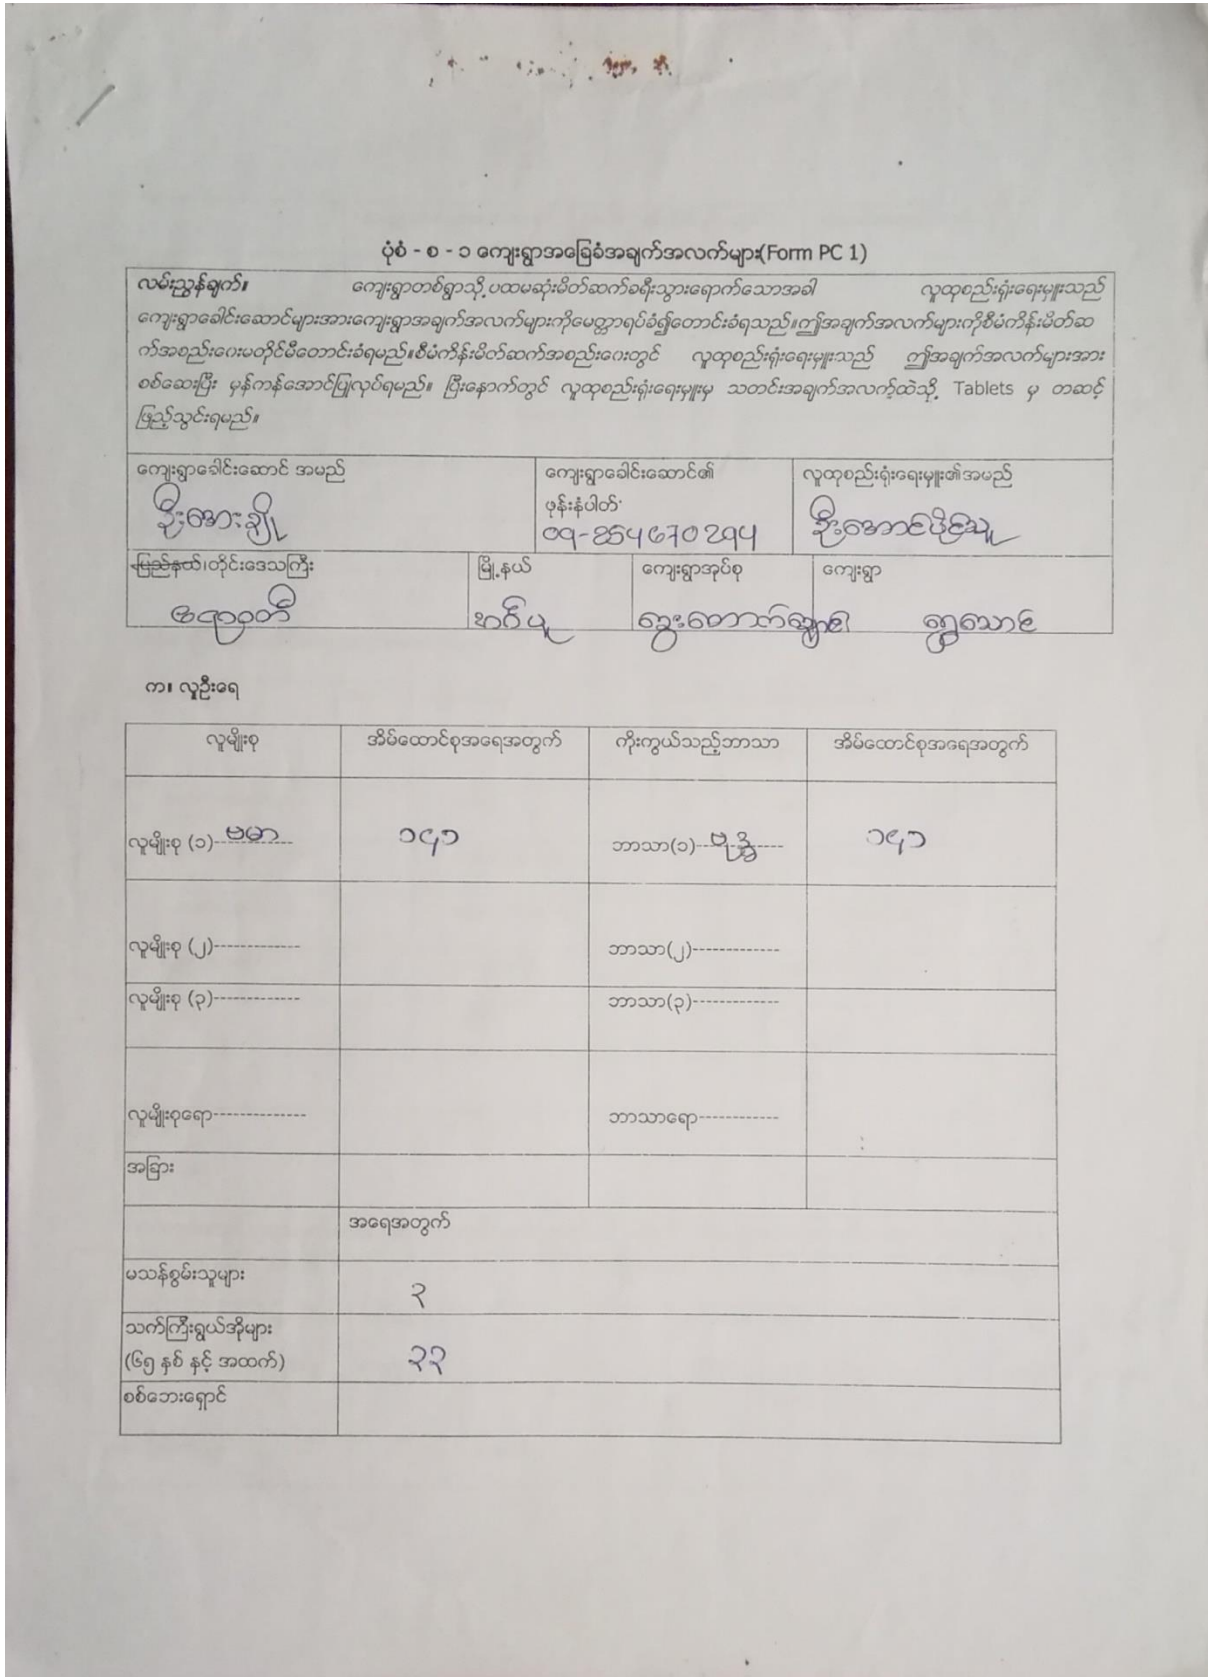 ပုံစံ - စ - ၁ ကျေးရွာအခြေခံအချက်အလက်များ(Form PC 1)
လမ်းညွှန်ချက်။ ကျေးရွာတစ်ရွာသို့ ပထမဆုံးမိတ်ဆက်ခရီးသွားရောက်သောအခါ လူထုစည်းရုံးရေးမှူးသည်
ကျေးရွာခေါင်းဆောင်များအားကျေးရွာအချက်အလက်များကိုမေတ္တာရပ်ခံ၍တောင်းခံရသည်။ဤအချက်အလက်များကိုစီမံကိန်းမိတ်ဆ
က်အစည်းဝေးမတိုင်မီတောင်းခံရမည်။စီမံကိန်းမိတ်ဆက်အစည်းဝေးတွင် လူထုစည်းရုံးရေးမှူးသည် ဤအချက်အလက်များအား
စစ်ဆေးပြီး မှန်ကန်အောင်ပြုလုပ်ရမည်။ ပြီးနောက်တွင် လူထုစည်းရုံးရေးမှူးမှ သတင်းအချက်အလက်ထဲသို့ Tablets မှ တဆင့်
ဖြည့်သွင်းရမည်။
ကျေးရွာခေါင်းဆောင် အမည် ကျေးရွာခေါင်းဆောင်၏ လူထုစည်းရုံးရေးမှူး၏အမည်
ဖုန်းနံပါတ်
ဦးအေးချို 09-254670294 ဦးအောင်ပိုင်သူ
ပြည်နယ်၊တိုင်းဒေသကြီး မြို့နယ် ကျေးရွာအုပ်စု ကျေးရွာ
ဧရာဝတီ အင်္ဂပူ ရွှေသောင်
က။ လူဦးရေ
လူမျိုးစု အိမ်ထောင်စုအရေအတွက် ကိုးကွယ်သည့်ဘာသာ အိမ်ထောင်စုအရေအတွက်
လူမျိုးစု (၁) ဗမာ ၁၄၁ ဘာသာ(၁) ဗုဒ္ဓ ၁၄၁
လူမျိုးစု (၂)------------- ဘာသာ(၂)-------------
လူမျိုးစု (၃)------------- ဘာသာ(၃)-------------
လူမျိုးစုရော-------------- ဘာသာရော------------
အခြား
အရေအတွက်
မသန်စွမ်းသူများ ၃
သက်ကြီးရွယ်အိုများ
(၆၅ နှစ် နှင့် အထက်) ၃၃
စစ်ဘေးရှောင်